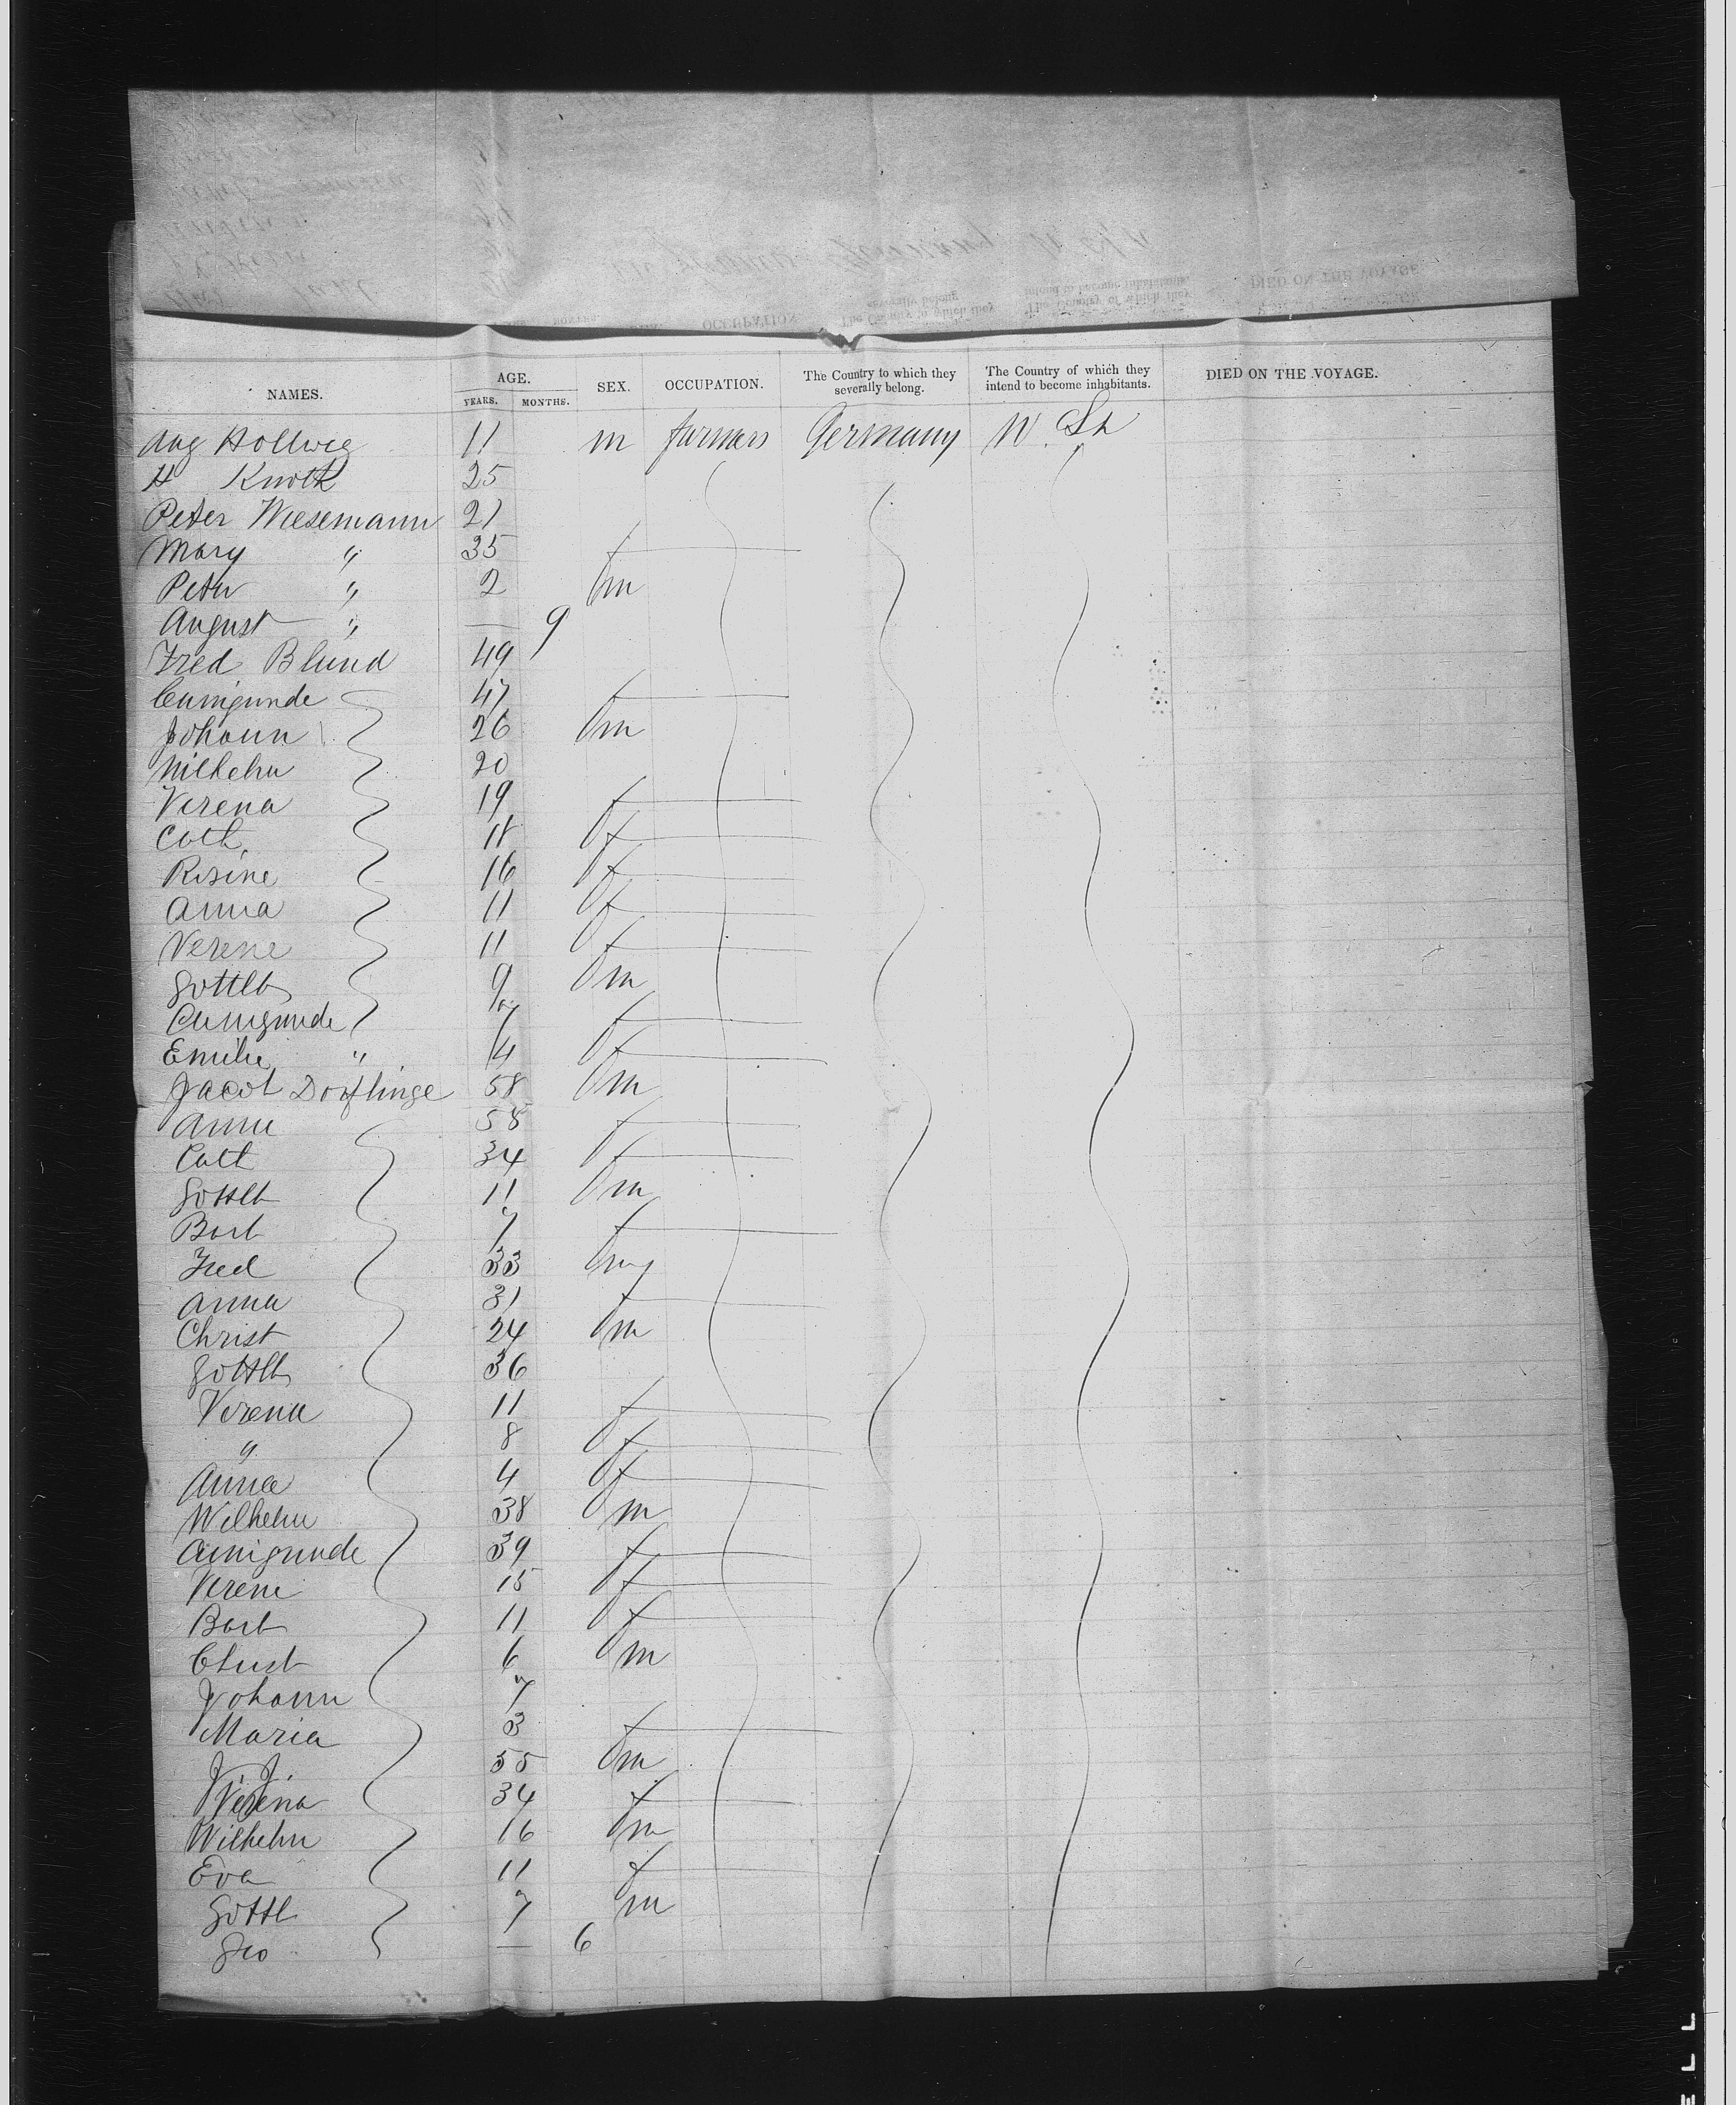 NAMES. AGE. YEARS. MONTHS. SEX. OCCUPATION. The Country to which they severally belong. The Country of which they intend to become inhabitants. DIED ON THE VOYAGE.
Aug Hollwig 11 m farmers Germany N. St
H Knoth 25
Peter Wiesemann 21
Mary " 35 f
Peter " 2 m
August " — 9
Fred Blund 49
Cunigunde 47 f
Johann 26 m
Wilhelm 20
Verena 19 f
Cath. 18 f
Rosine 16 f
Anna 11 f
Verene 11 f
Gottlb 9 m
Cunigunde 7 f
Emilie " 4 f
Jacob Dorflinge 58 m
Anna 58 f
Cath 34 f
Gottlb 11 m
Barb 7 f
Fred 33 m
Anna 31 f
Christ 24 m
Gottlb 36
Verena 11 f
" 8 f
Anna 4 f
Wilhelm 38 m
Cunigunde 39 f
Verene 15 f
Barb 11 f
Christ 6 m
Johann 7
Maria 3 f
J. J. 55 m
Verena 34 f
Wilhelm 16 m
Eva 11 f
Gottl 7 m
Geo — 6
ELL